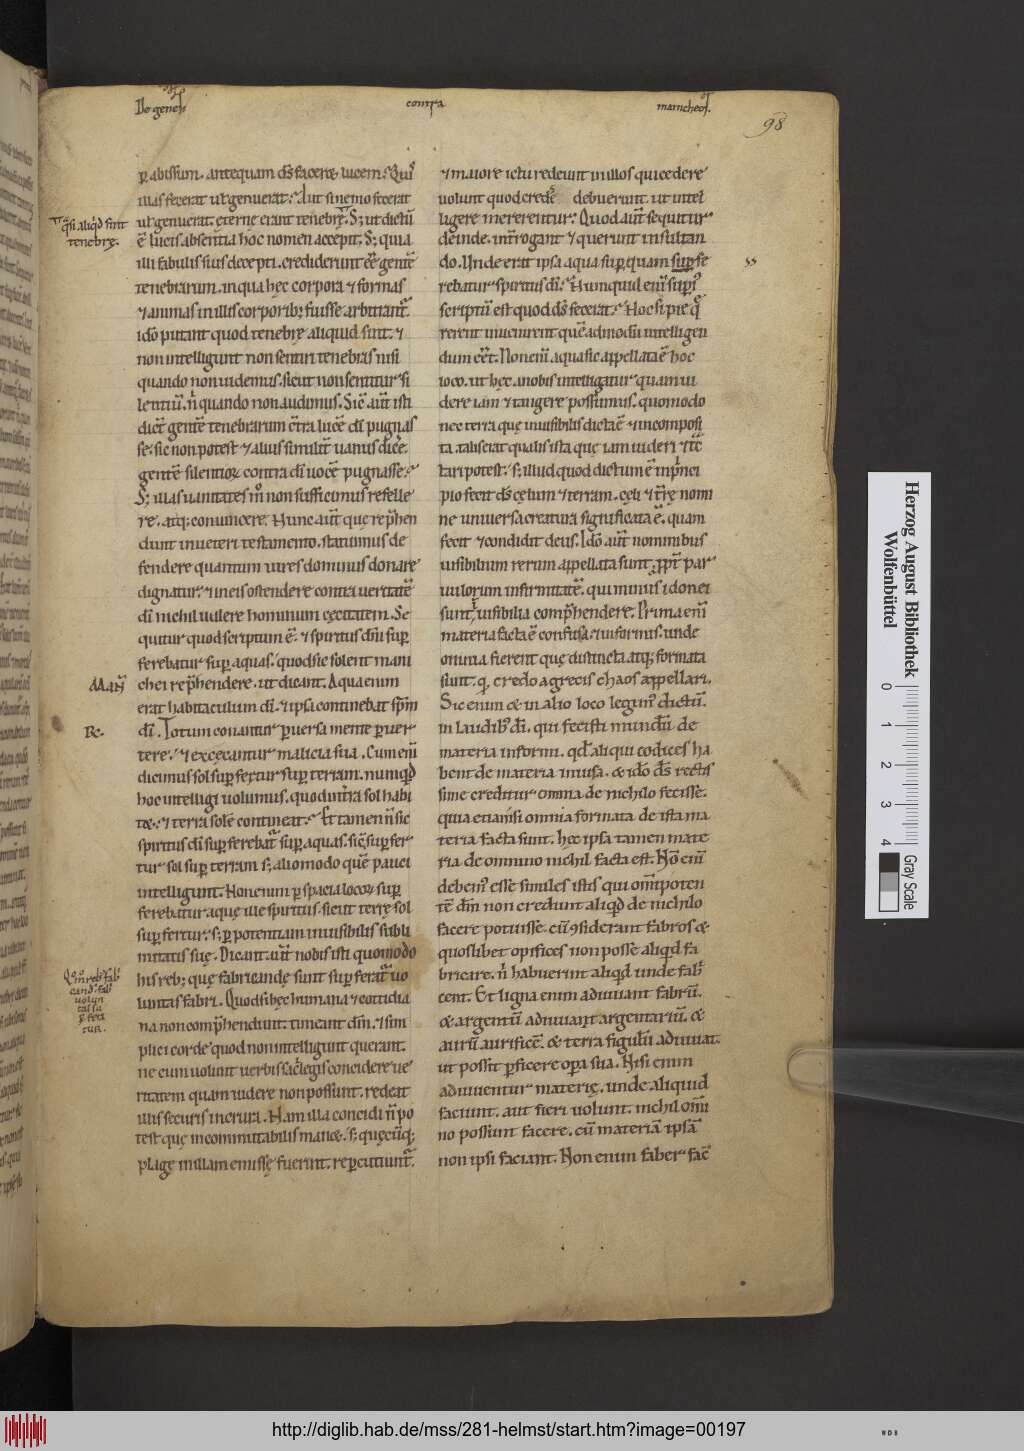 De genesi
contra
manicheos.
98
p abissum. antequam ds faceret lucem? Quis
illas fecerat ut genuerat? Aut si nemo fecerat
ut genuerat. ęterne erant tenebrę. S; ut dictū
ē lucis absentia hoc nomen accepit. S; quia
illi fabulis suis decepti. crediderunt eē gentē
tenebrarum. in qua hęc corpora & formas
& animas in illis corporib; fuisse arbitrant.
ido putant quod tenebrę aliquid sint. &
non intelligunt non sentiri tenebras nisi
quando non uidemus. sicut non sentitur si
lentiū. n quando non audimus. Sic aut isti
dict gentē tenebrarum ctra lucē di pugnas
se. sic non potest & alius similit uanus dicē.
gentē silentioꝝ contra di uocē pugnasse.
S; illas uanitates m non sufficimus refelle
re. atq; conuincere. Nunc aut que rephen
dunt in ueteri testamento. statuimus de
fendere quantum uires dominus donare
dignatur. & in eis ostendere contra ueritatē
di nichil ualere hominum cęcitatem. Se
quitur quod scriptum ē. & spiritus dni sup
ferebatur sup aquas. quod sic solent mani
chei rephendere. ut dicant. Aqua enim
erat habitaculum di. & ipsa continebat spm
di. Totum conantur puersa mente puer
tere. & excęcantur malicia sua. Cum eni
dicimus sol supfertur sup terram. nunqd
hoc intelligi uolumus. quod intra sol habi
tet. & terra solē contineat? Et tamen n sic
spiritus di supferebat sup aquas. sic supfer
tur sol sup terram s; alio modo quē pauci
intelligunt. Non enim p spacia locoꝝ sup
ferebatur aquę ille spiritus. sicut terrę sol
supfertur. s; p potentiam inuisibilis subli
mitatis suę. Dicant aut nobis isti quomodo
his reb; quę fabricandę sunt supferat uo
luntas fabri. Quod si hęc humana & cottidia
na non comphendunt. timeant dm. & sim
plici corde quod non intelligunt querant.
ne cum uolunt uerbis sacrilegis concidere ue
ritatem quam uidere non possunt. redeat
illis securis in crura. Nam illa concidi n po
test quę incommutabilis manet. s; quęcūq;
plage in illam emissę fuerint. repcutiunt.
& maiore ictu redeunt in illos qui cedere
uolunt quod crede debuerunt. ut intel
ligere mererentur. Quod aut sequitur
deinde. introgant & querunt insultan
do. Unde erat ipsa aqua sup quam supfe
rebatur spiritus di? Nunquid eni supi
scriptū est quod ds fecerat? Hoc si pie q
rerent inuenirent quēadmodū intelligen
dum eet. Non eni. aqua sic appellata ē hoc
loco. ut hęc. a nobis intelligatur quam ui
dere iam & tangere possimus. quomodo
nec terra quę inuisibilis dicta ē & incomposi
ta. talis erat qualis ista quę iam uideri & tc
tari potest. s; illud quod dictum ē in pnci
pio fecit ds cęlum & terram. cęli & trę nomi
ne uniuersa creatura significata ē. quam
fecit & condidit deus. Ido aut nominibus
uisibilium rerum appellata sunt. ppt par
uulorum infirmitatē. qui minus idonei
sunt inuisibilia comphendere. Prima eni
materia facta ē confusa. & informis. unde
omnia fierent quę distincta. atq; formata
sunt. q. credo a grecis chaos appellari.
Sic enim & in alio loco legim dictū.
in laudib; di. qui fecisti mundū de
materia informi. qd aliqui codices ha
bent de materia inuisa. & ido ds rectis
sime creditur omnia de nichilo fecisse.
quia etiamsi omnia formata de ista ma
teria facta sunt. hęc ipsa tamen mate
ria de omnino nichil facta est. No eni
debem esse similes istis qui omipoten
tē dm non credunt aliqd de nichilo
facere potuisse. cū ꝯsiderant fabros &
quoslibet opifices non posse aliqd fa
bricare. n habuerint aliqd unde fabi
cent. Et ligna enim adiuuant fabrū.
& argentū adiuuant argentariū. &
aurū. aurificē. & terra figulū adiuuat
ut possit pficere opa sua. Nisi enim
adiuuentur materię. unde aliquid
faciunt. aut fieri uolunt. nichil omi
no possunt facere. cū materiā ipsā
non ipsi faciant. Non enim faber fac
qsi aliqd sint
tenebrę.
Man
Rc.
Qm reb; fab
cand. fab
uolun
tas su
p fera
tur.
Herzog August Bibliothek
Wolfenbüttel
0 1 2 3 4
Gray Scale
http://diglib.hab.de/mss/281-helmst/start.htm?image=00197